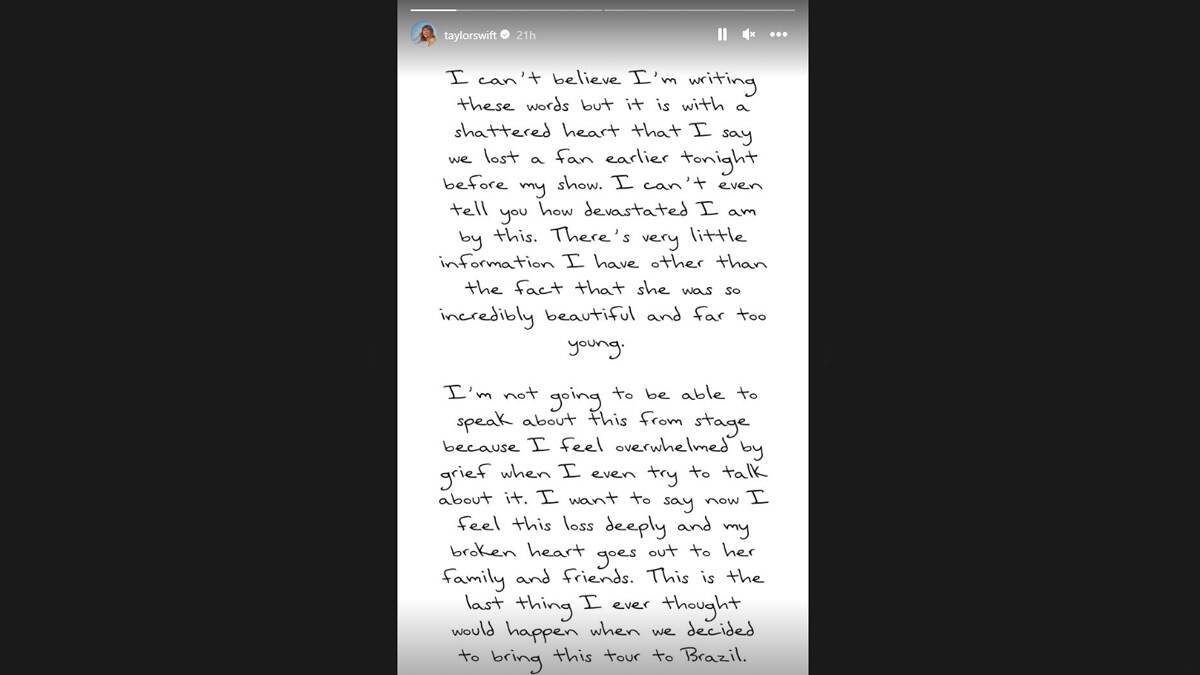 taylorswift 21h
I can't believe I'm writing
these words but it is with a
shattered heart that I say
we lost a fan earlier tonight
before my show. I can't even
tell you how devastated I am
by this. There's very little
information I have other than
the fact that she was so
incredibly beautiful and far too
young.
I'm not going to be able to
speak about this from stage
because I feel overwhelmed by
grief when I even try to talk
about it. I want to say now I
feel this loss deeply and my
broken heart goes out to her
family and friends. This is the
last thing I ever thought
would happen when we decided
to bring this tour to Brazil.